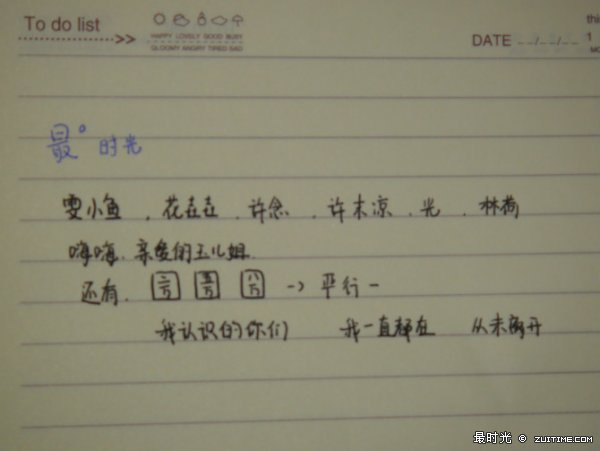 To do list
HAPPY LOVELY GOOD BUSY
GLOOMY ANGRY TIRED SAD
DATE __/__/__
1
最° 时光
雯小鱼 . 花在在 . 许念 . 许木凉 . 光 . 林荷
嗨嗨. 亲爱的玉儿姐
还有. 二万 五万 八万 -> 平行一
我认识的你们 我一直都在 从未离开
最时光 © ZUITIME.COM